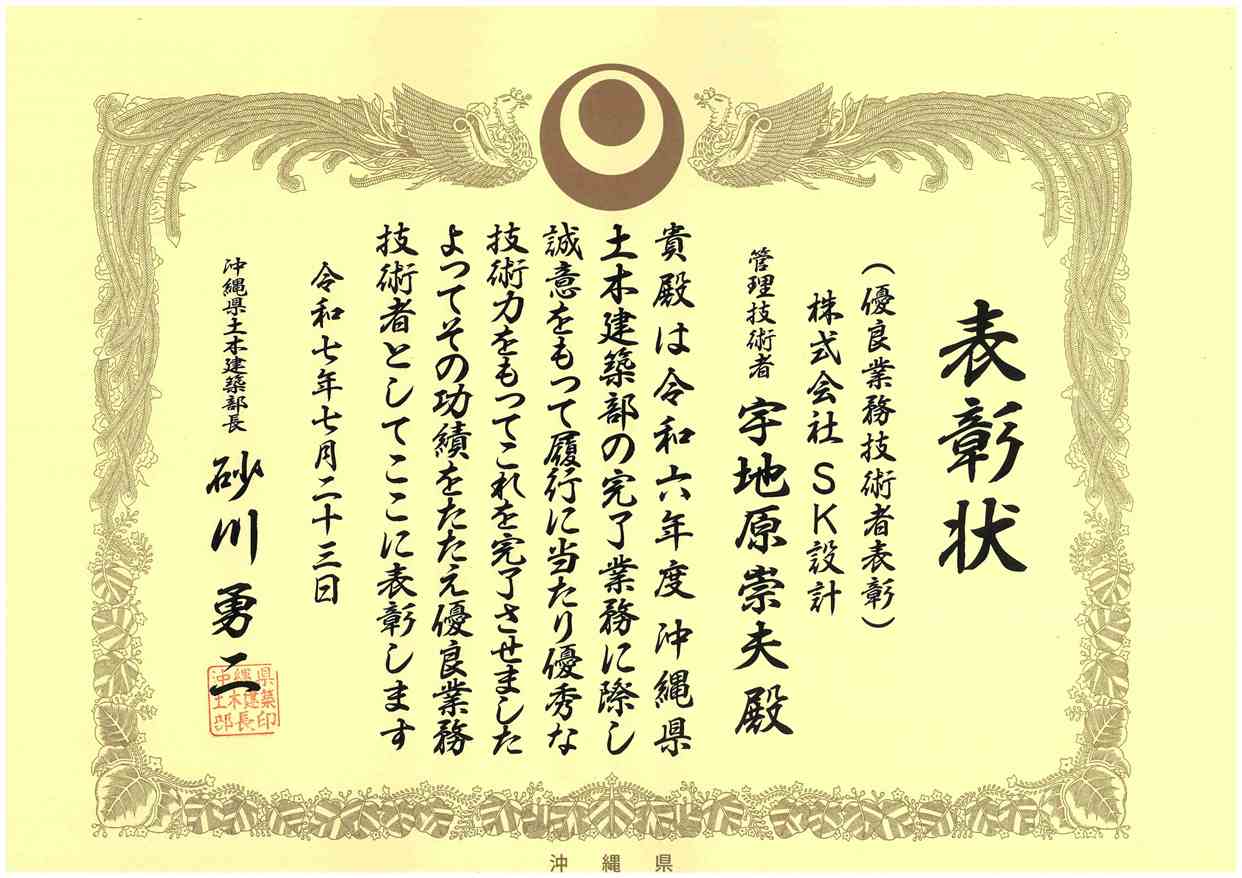 表彰状
（優良業務技術者表彰）
株式会社ＳＫ設計
管理技術者 宇地原崇夫殿
貴殿は令和六年度 沖縄県
土木建築部の完了業務に際し
誠意をもって履行に当たり優秀な
技術力をもってこれを完了させました
よってその功績をたたえ優良業務
技術者としてここに表彰します
令和七年七月二十三日
沖縄県土木建築部長 砂川勇二
沖縄県
土木建築
部長印
沖縄県